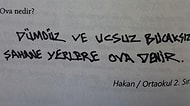 Ova nedir?
DÜMDÜZ VE UCSUZ BUCAKSIZ
ŞAHANE YERLERE OVA DENİR.
Hakan / Ortaokul 2. Sın